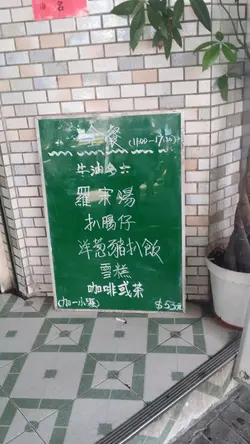 名
餐 (11:00-17:30)
牛油多六
羅宋湯
扒腸仔
洋葱豬扒飯
雪糕
咖啡或茶
(加一小費)
$53元